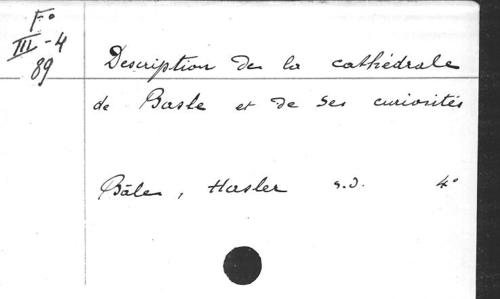 F°
III-4
89
Description de la cathédrale
de Basle et de ses curiosités
Bâle, Hasler s.d. 4°